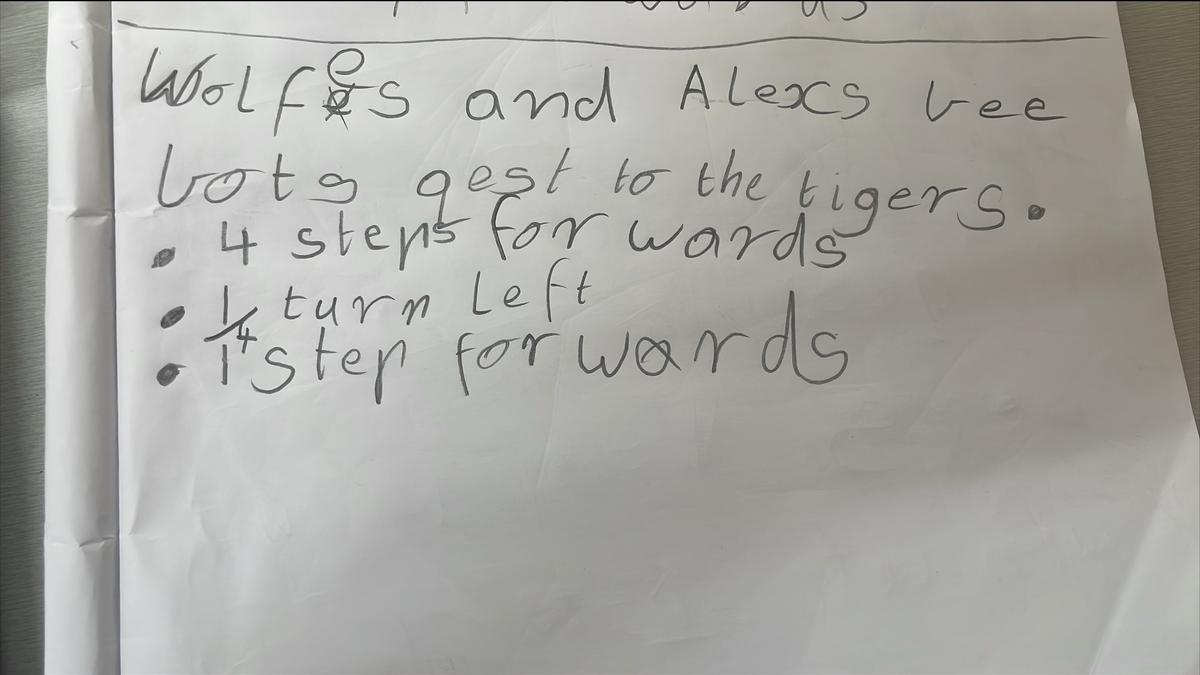 Wolfes and Alexs bee
bots qest to the tigers.
• 4 steps for wards
• 1/4 turn left
• 1 step for wards